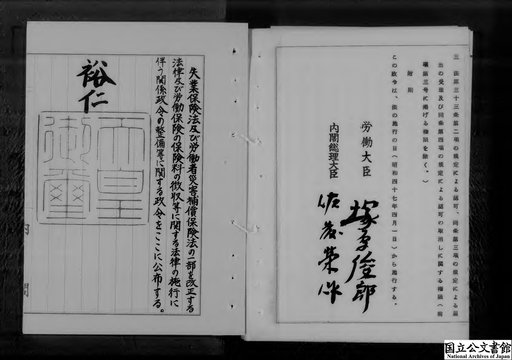 三 法第三十三条第二項の規定による認可、同条第三項の規定による届
出の受理及び同条第四項の規定による認可の取消しに関する権限(前
項第三号に掲げる権限を除く。)
附則
この政令は、法の施行の日(昭和四十七年四月一日)から施行する。
労働大臣 塚原俊郎
内閣総理大臣 佐藤榮作
失業保険法及び労働者災害補償保険法の一部を改正する
法律及び労働保険の保険料の徴収等に関する法律の施行に
伴う関係政令の整備等に関する政令をここに公布する。
裕仁
天皇
御璽
国立公文書館
National Archives of Japan